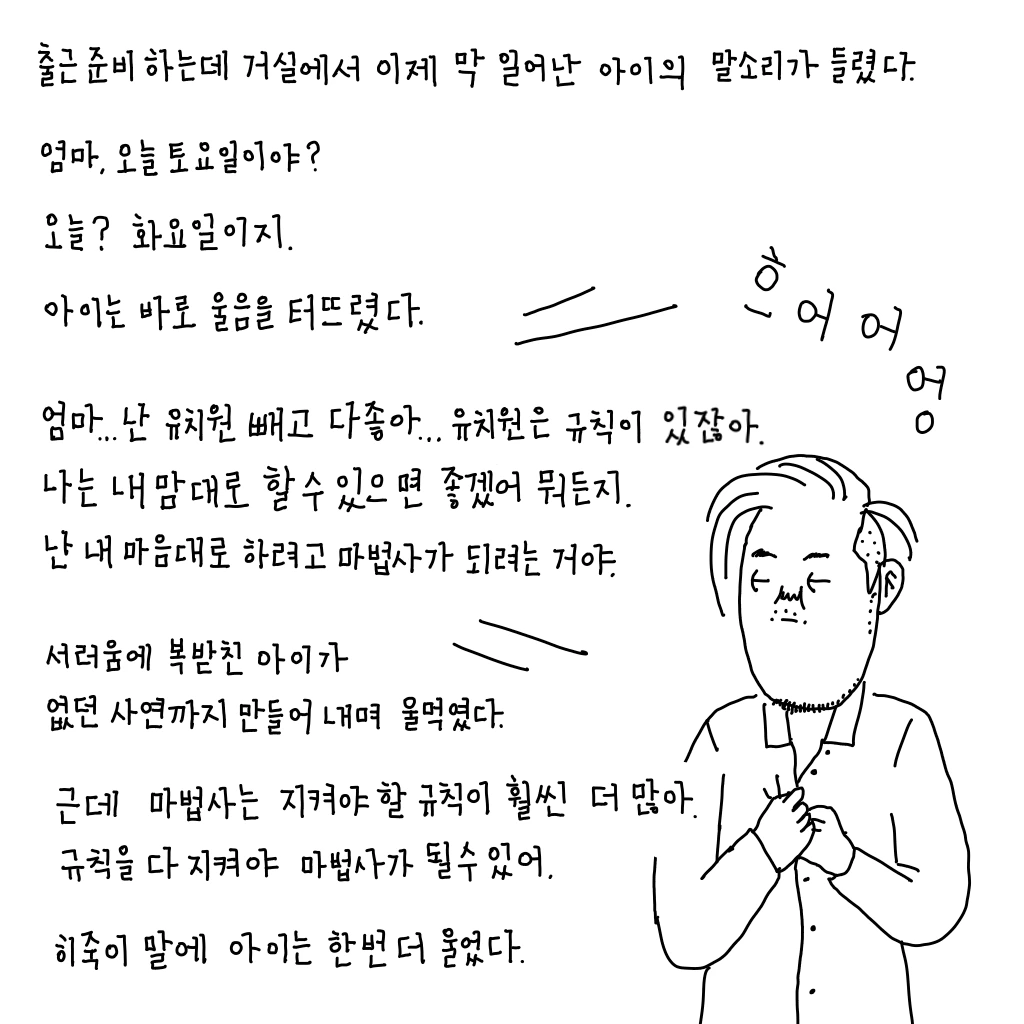 출근 준비 하는데 거실에서 이제 막 일어난 아이의 말소리가 들렸다.
엄마, 오늘 토요일이야?
오늘? 화요일이지.
아이는 바로 울음을 터뜨렸다.
흐어어엉
엄마... 난 유치원 빼고 다좋아... 유치원은 규칙이 있잖아.
나는 내 맘대로 할 수 있으면 좋겠어 뭐든지.
난 내 마음대로 하려고 마법사가 되려는 거야.
서러움에 복받친 아이가
없던 사연까지 만들어 내며 울먹였다.
근데 마법사는 지켜야 할 규칙이 훨씬 더 많아.
규칙을 다 지켜야 마법사가 될 수 있어.
히죽이 말에 아이는 한번 더 울었다.